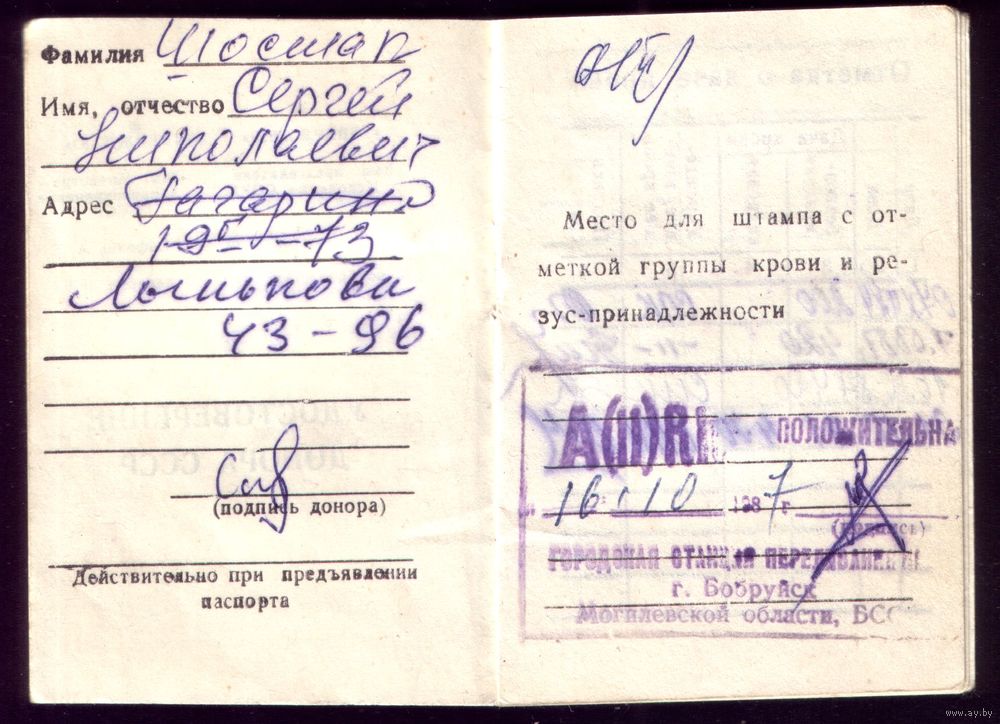 Фамилия Шосмак
Имя, отчество Сергей
Николаевич
Адрес Гагарина
19 -73
Лынькова
43-96
(подпись донора)
Действительно при предъявлении
паспорта
Место для штампа с от-
меткой группы крови и ре-
зус-принадлежности
A(II)Rh ПОЛОЖИТЕЛЬНА
16. 10 1987 г
(подпись)
ГОРОДСКАЯ СТАНЦИЯ ПЕРЕЛИВАНИЯ
г. Бобруйск
Могилевской области, БСС
www.ay.by